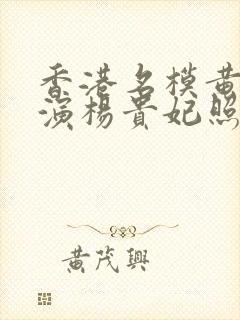 香港名模黄
演楊貴妃照
黄茂興